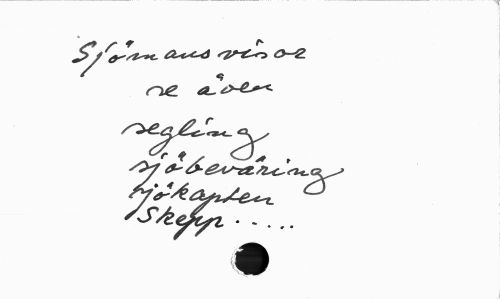 Sjömansvisor
se även
segling
sjöbeväring
sjökapten
Skepp.....